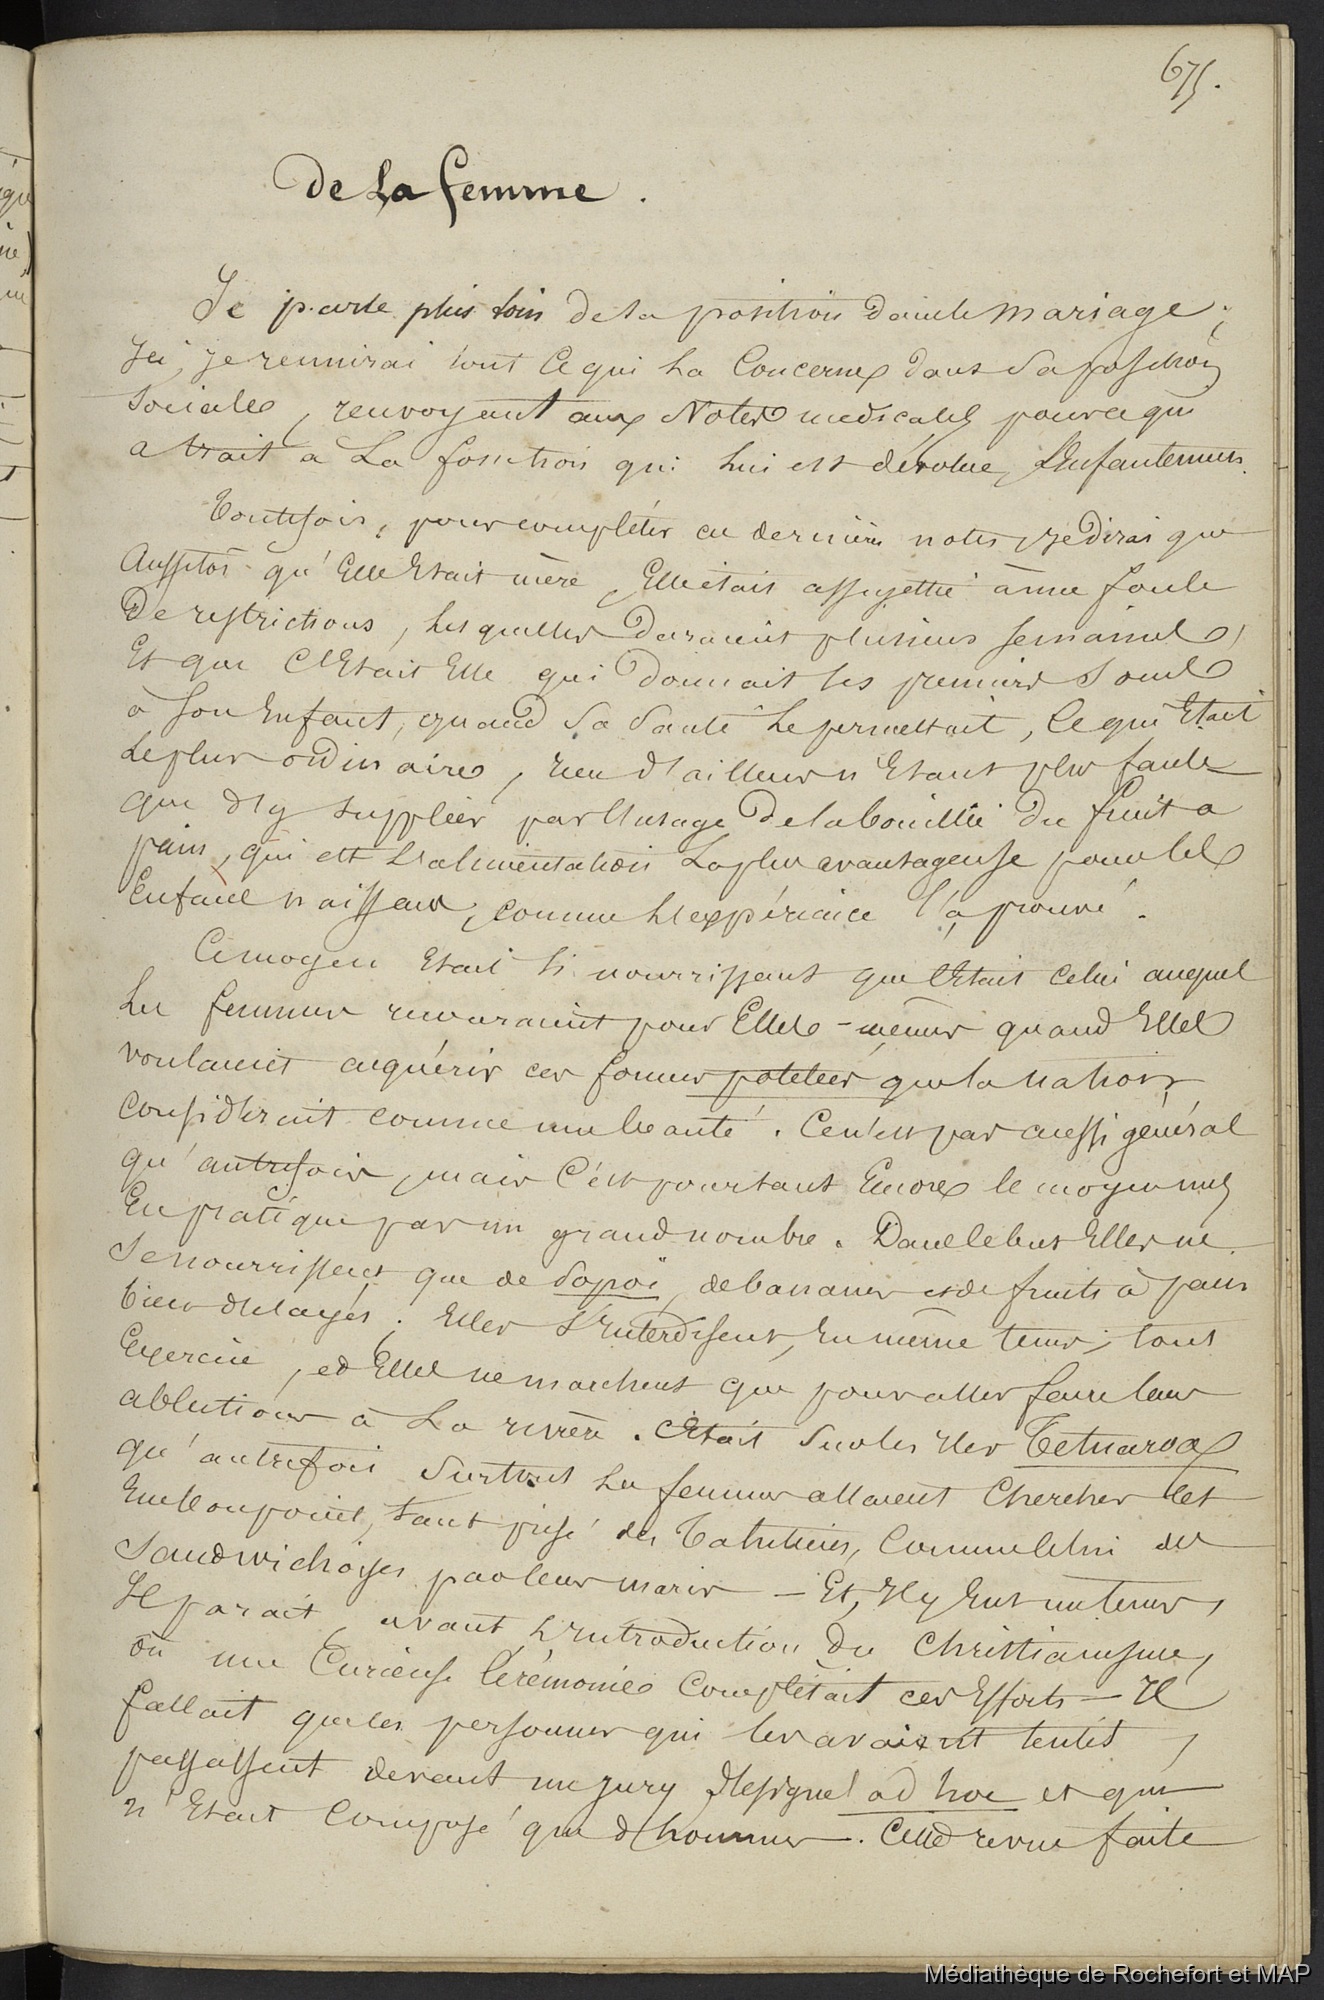 675.
De La femme.
Je parle plus loin de la position dans le mariage;
Ici, je reunirai tout ce qui La Concerne dans Sa position
Sociale, renvoyant aux Notes medicales pour ce qui
a trait à La fonction qui lui est dévolue, L'Enfantement.
Toutefois, pour compléter ces dernières notes, je dirai que
Aussitôt qu'Elle Etait mère, Elle était assujettie à une foule
De restrictions, lesquelles Duraient plusieurs semaines,
Et que C'Etait Elle qui Donnait les premiers Soins
à Son Enfant, quand Sa Santé le permettait, Ce qui Etait
Le plus ordinaire, rien d'ailleurs n'Etant plus facile
que d'y suppléer par l'usage De la bouillie Du fruit à
pain, qui est L'alimentation La plus avantageuse pour les
Enfans naissans, comme L'expérience l'a prouvé.
Ce moyen Etait Si nourrissant que C'Etait celui auquel
Les femmes recouraient pour Elles-mêmes quand Elles
voulaient acquérir ces formes potelées que la nation
considérait comme une beauté. Ce n'est pas aussi général
qu'autrefois, mais C'est pourtant Encore le moyen mis
En pratique par un grand nombre. Dans le but Elles ne
Se nourrissent que de Popoï, de bananes et de fruits à pain
bien délayés; Elles S'Interdisent, En même tems, tout
Exercice, et Elles ne marchent que pour aller faire leurs
ablutions à La rivière. C'Etait Sur les Iles Tetuaroa
qu'autrefois Surtout les femmes allaient Chercher cet
Embonpoint, tant prisé des Tahitiens, Comme celui des
Sandwichoises par leurs maris – Et, Il y Eut un tems,
Il parait, avant L'Introduction Du Christianisme,
où une Curieuse Cérémonie Complétait ces Efforts – Il
fallait que les personnes qui les avaient tentés,
passassent devant un jury désigné ad hoc et qui
n'Etait Composé que d'hommes. Cette revue faite
Médiathèque de Rochefort et MAP